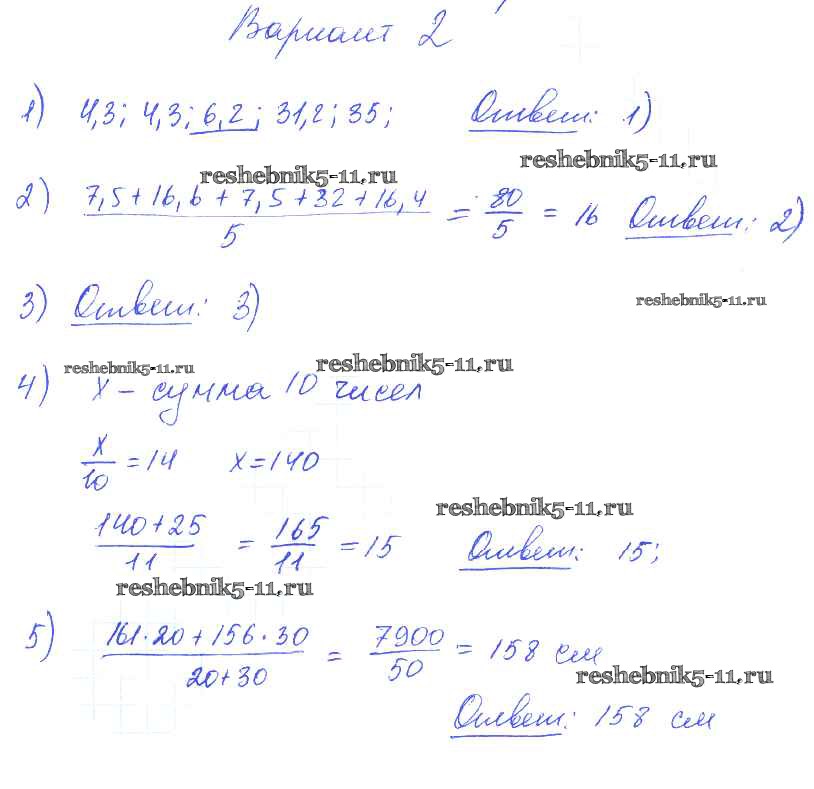 Вариант 2
1) 4,3; 4,3; 6,2; 31,2; 35; Ответ: 1)
reshebnik5-11.ru
reshebnik5-11.ru
2) 7,5 + 16,6 + 7,5 + 32 + 16,4 / 5 = 80/5 = 16 Ответ: 2)
3) Ответ: 3)
reshebnik5-11.ru
reshebnik5-11.ru
reshebnik5-11.ru
4) х – сумма 10 чисел
х/10 = 14 х = 140
reshebnik5-11.ru
140+25 / 11 = 165/11 = 15 Ответ: 15;
reshebnik5-11.ru
5) 161·20 + 156·30 / 20+30 = 7900/50 = 158 см
reshebnik5-11.ru
Ответ: 158 см